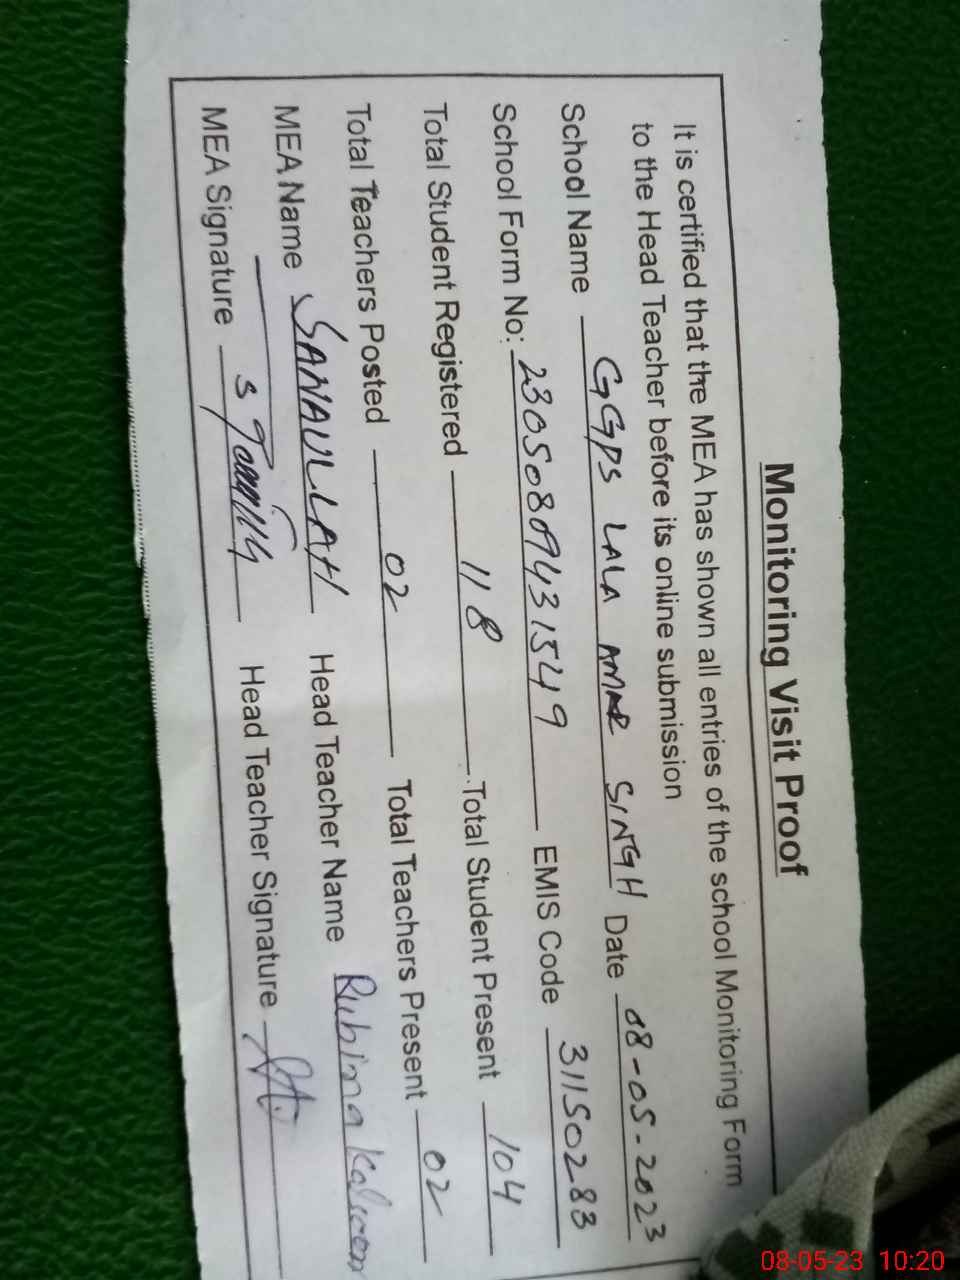 Monitoring Visit Proof
It is certified that the MEA has shown all entries of the school Monitoring Form
to the Head Teacher before its online submission
School Name GGPS LALA AMAR SINGH Date 08-05-2023
School Form No: 23050809431549 EMIS Code 31150283
Total Student Registered 118 Total Student Present 104
Total Teachers Posted 02 Total Teachers Present 02
MEA Name SANAULLAH Head Teacher Name Rubina Kalsoom
MEA Signature Head Teacher Signature
08-05-23 10:20